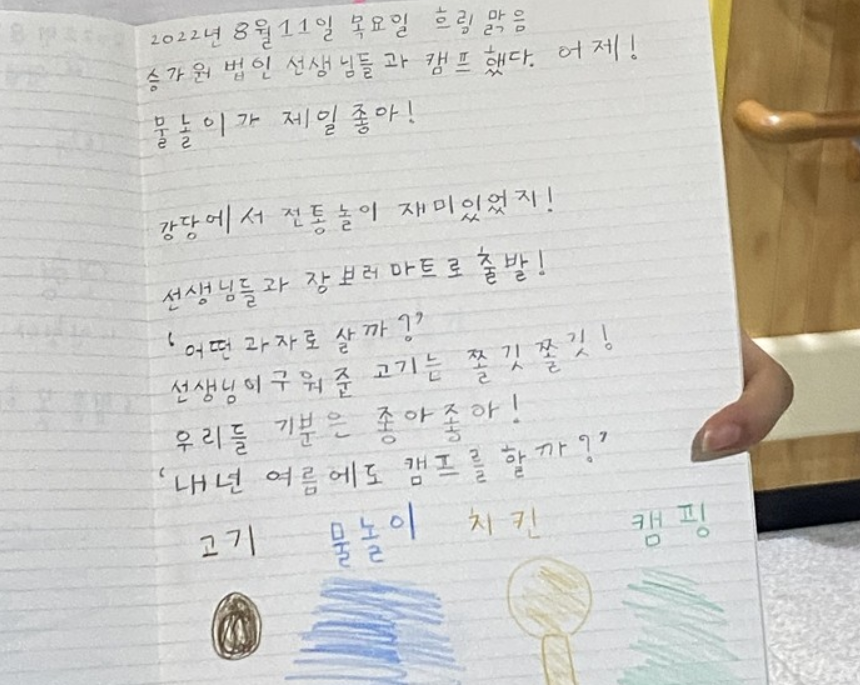 2022년 8월 11일 목요일 흐림 맑음
승가원 법인 선생님들과 캠프했다. 어제!
물놀이가 제일 좋아!
강당에서 전통놀이 재미있었지!
선생님들과 장보러 마트로 출발!
'어떤 과자로 살까?'
선생님이 구워준 고기는 쫄깃쫄깃!
우리들 기분은 좋아좋아!
'내년 여름에도 캠프를 할까?'
고기 물놀이 치킨 캠핑